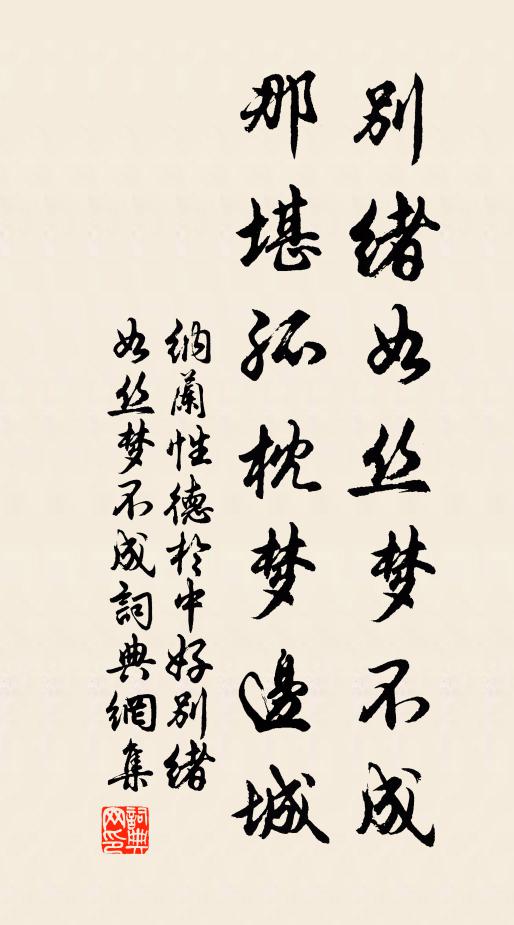 别绪如丝梦不成
那堪孤枕梦邊城
纳蘭性德於中好别绪
如丝梦不成詞典網集
詞典网印